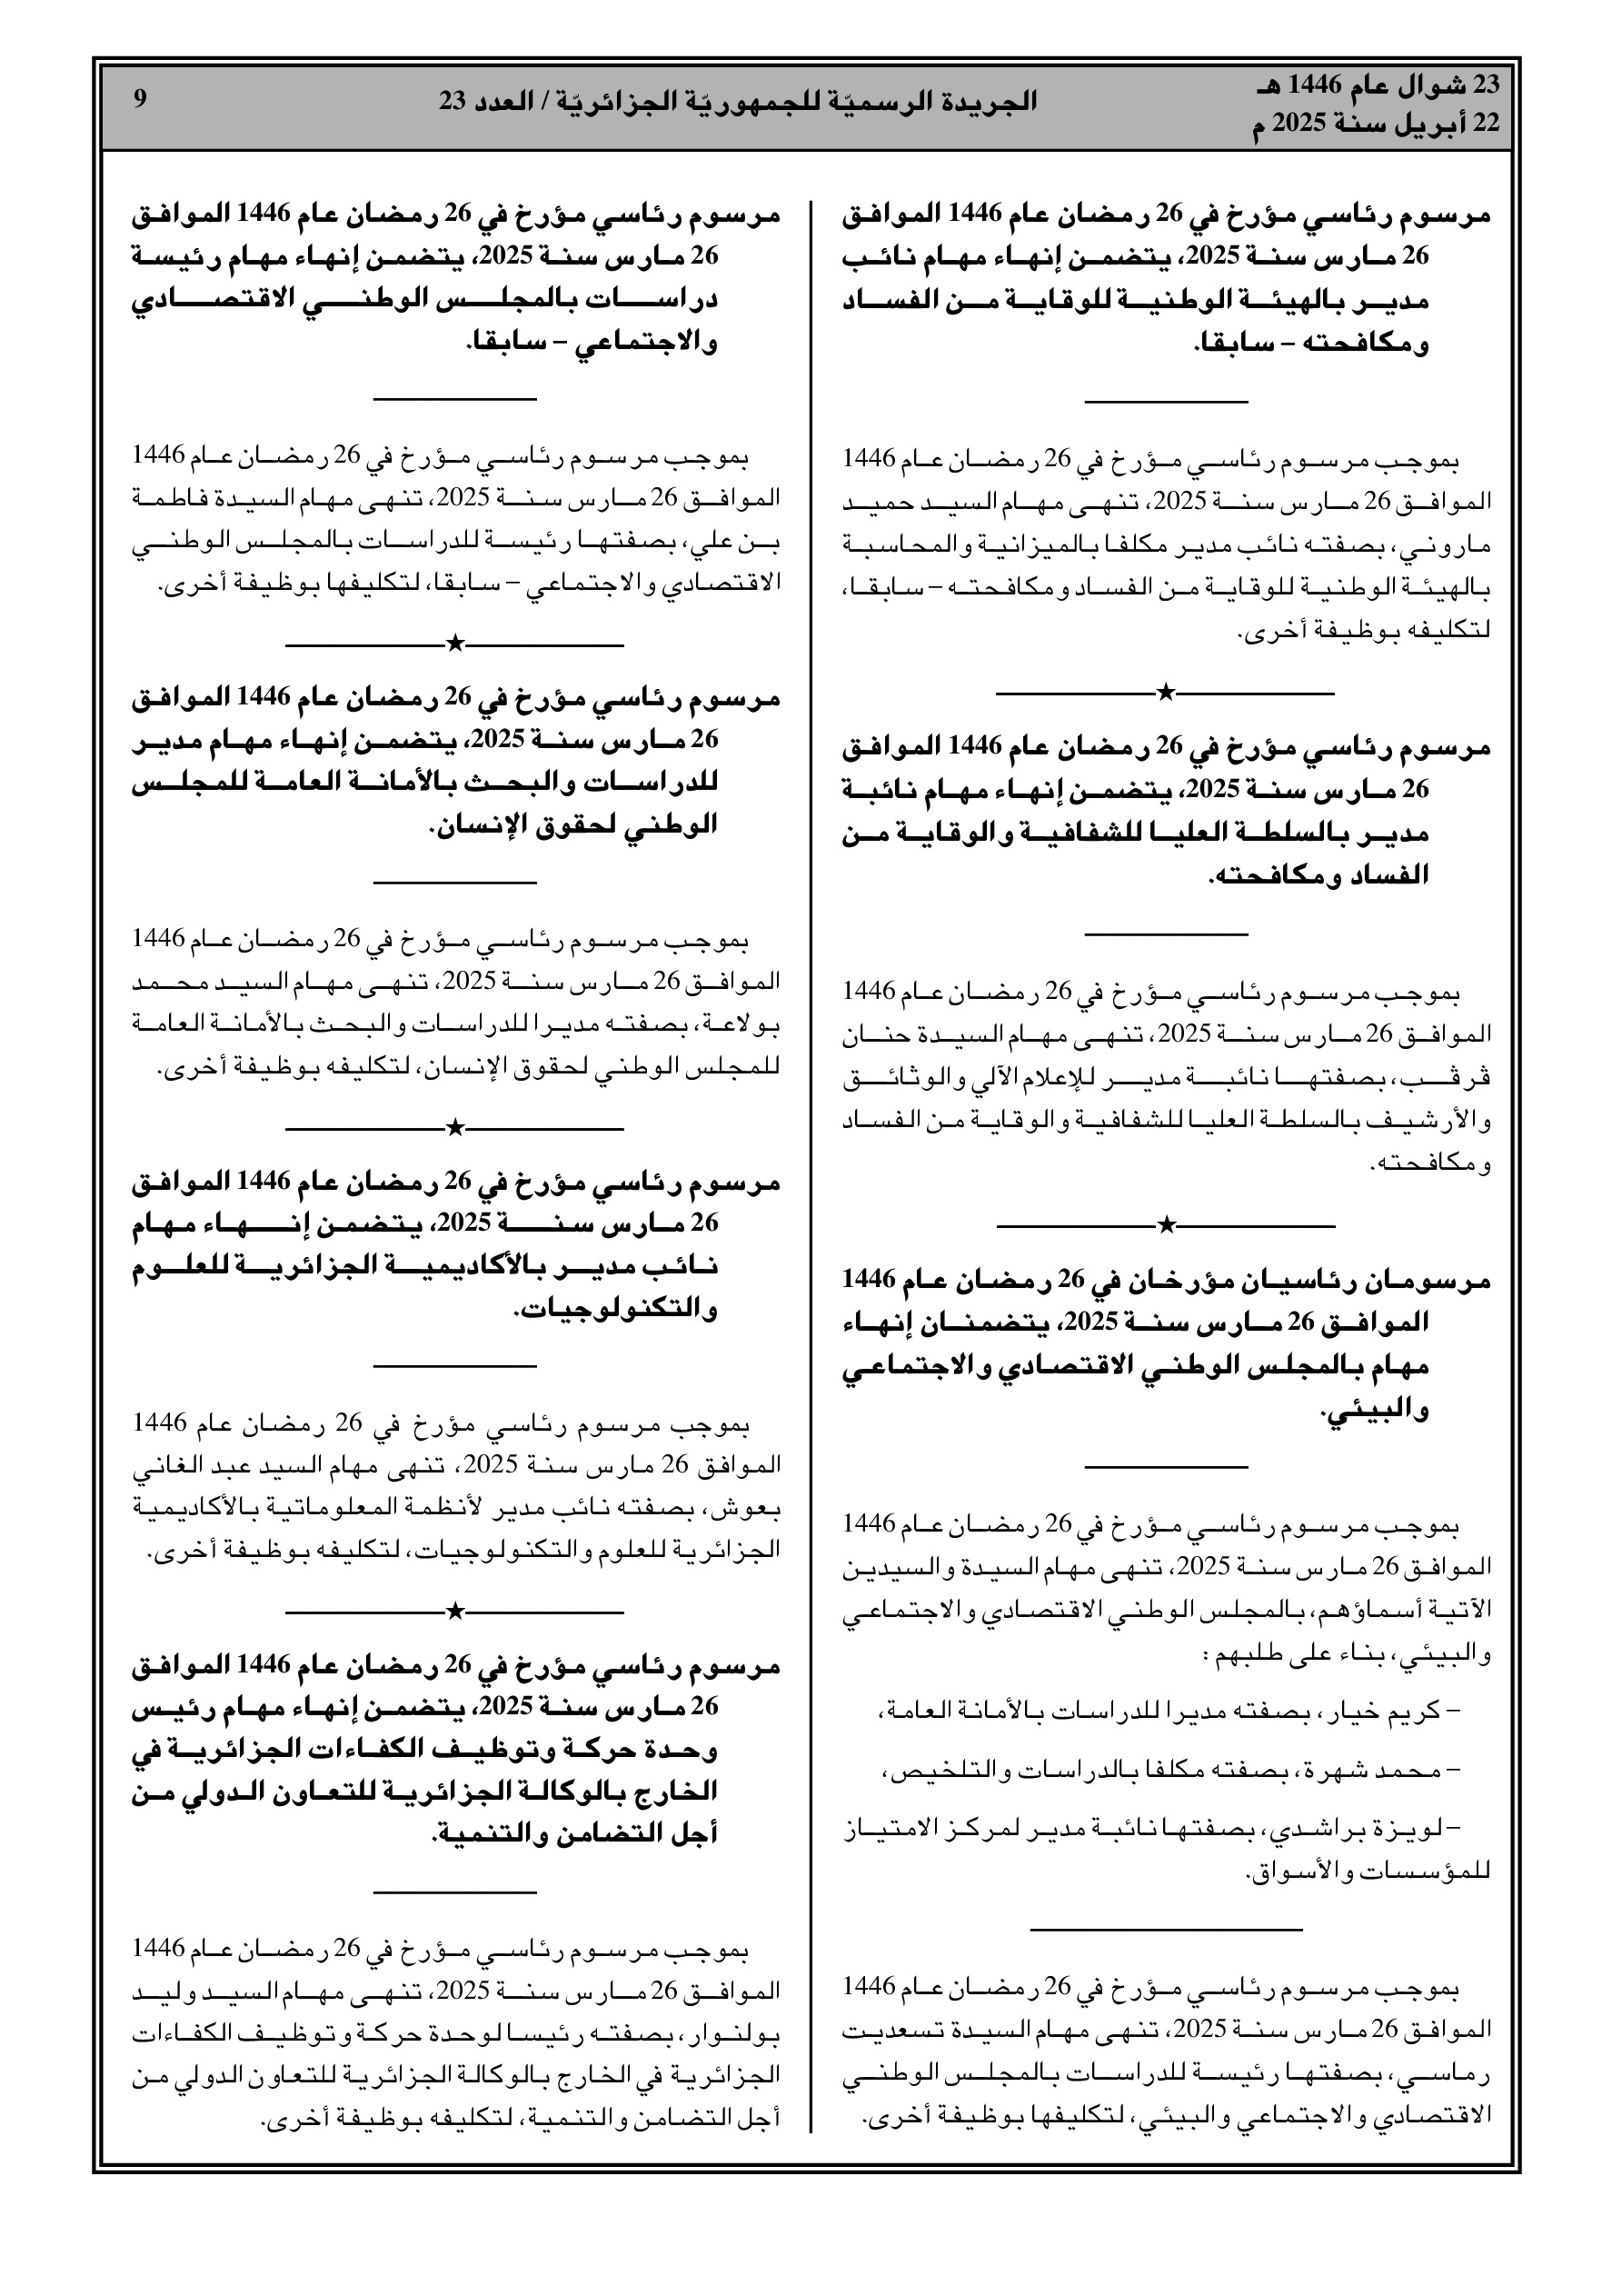 23 شوال عام 1446 هـ
22 أبريل سنة 2025 م
الجريدة الرسميّة للجمهوريّة الجزائريّة / العدد 23
9
مرسوم رئاسي مؤرخ في 26 رمضان عام 1446 الموافق
26 مارس سنة 2025، يتضمن إنهاء مهام نائب
مدير بالهيئة الوطنية للوقاية من الفساد
ومكافحته – سابقا.
بموجب مرسوم رئاسي مؤرخ في 26 رمضان عام 1446
الموافق 26 مارس سنة 2025، تنهى مهام السيد حميد
ماروني، بصفته نائب مدير مكلفا بالميزانية والمحاسبة
بالهيئة الوطنية للوقاية من الفساد ومكافحته – سابقا،
لتكليفه بوظيفة أخرى.
مرسوم رئاسي مؤرخ في 26 رمضان عام 1446 الموافق
26 مارس سنة 2025، يتضمن إنهاء مهام نائبة
مدير بالسلطة العليا للشفافية والوقاية من
الفساد ومكافحته.
بموجب مرسوم رئاسي مؤرخ في 26 رمضان عام 1446
الموافق 26 مارس سنة 2025، تنهى مهام السيدة حنان
ڤرڤب، بصفتها نائبة مدير للإعلام الآلي والوثائق
والأرشيف بالسلطة العليا للشفافية والوقاية من الفساد
ومكافحته.
مرسومان رئاسيان مؤرخان في 26 رمضان عام 1446
الموافق 26 مارس سنة 2025، يتضمنان إنهاء
مهام بالمجلس الوطني الاقتصادي والاجتماعي
والبيئي.
بموجب مرسوم رئاسي مؤرخ في 26 رمضان عام 1446
الموافق 26 مارس سنة 2025، تنهى مهام السيدة والسيدين
الآتية أسماؤهم، بالمجلس الوطني الاقتصادي والاجتماعي
والبيئي، بناء على طلبهم :
– كريم خيار، بصفته مديرا للدراسات بالأمانة العامة،
– محمد شهرة، بصفته مكلفا بالدراسات والتلخيص،
– لويزة براشدي، بصفتها نائبة مدير لمركز الامتياز
للمؤسسات والأسواق.
بموجب مرسوم رئاسي مؤرخ في 26 رمضان عام 1446
الموافق 26 مارس سنة 2025، تنهى مهام السيدة تسعديت
رماسي، بصفتها رئيسة للدراسات بالمجلس الوطني
الاقتصادي والاجتماعي والبيئي، لتكليفها بوظيفة أخرى.
مرسوم رئاسي مؤرخ في 26 رمضان عام 1446 الموافق
26 مارس سنة 2025، يتضمن إنهاء مهام رئيسة
دراسات بالمجلس الوطني الاقتصادي
والاجتماعي – سابقا.
بموجب مرسوم رئاسي مؤرخ في 26 رمضان عام 1446
الموافق 26 مارس سنة 2025، تنهى مهام السيدة فاطمة
بن علي، بصفتها رئيسة للدراسات بالمجلس الوطني
الاقتصادي والاجتماعي – سابقا، لتكليفها بوظيفة أخرى.
مرسوم رئاسي مؤرخ في 26 رمضان عام 1446 الموافق
26 مارس سنة 2025، يتضمن إنهاء مهام مدير
للدراسات والبحث بالأمانة العامة للمجلس
الوطني لحقوق الإنسان.
بموجب مرسوم رئاسي مؤرخ في 26 رمضان عام 1446
الموافق 26 مارس سنة 2025، تنهى مهام السيد محمد
بولاعة، بصفته مديرا للدراسات والبحث بالأمانة العامة
للمجلس الوطني لحقوق الإنسان، لتكليفه بوظيفة أخرى.
مرسوم رئاسي مؤرخ في 26 رمضان عام 1446 الموافق
26 مارس سنة 2025، يتضمن إنهاء مهام
نائب مدير بالأكاديمية الجزائرية للعلوم
والتكنولوجيات.
بموجب مرسوم رئاسي مؤرخ في 26 رمضان عام 1446
الموافق 26 مارس سنة 2025، تنهى مهام السيد عبد الغاني
بعوش، بصفته نائب مدير لأنظمة المعلوماتية بالأكاديمية
الجزائرية للعلوم والتكنولوجيات، لتكليفه بوظيفة أخرى.
مرسوم رئاسي مؤرخ في 26 رمضان عام 1446 الموافق
26 مارس سنة 2025، يتضمن إنهاء مهام رئيس
وحدة حركة وتوظيف الكفاءات الجزائرية في
الخارج بالوكالة الجزائرية للتعاون الدولي من
أجل التضامن والتنمية.
بموجب مرسوم رئاسي مؤرخ في 26 رمضان عام 1446
الموافق 26 مارس سنة 2025، تنهى مهام السيد وليد
بولنوار، بصفته رئيسا لوحدة حركة وتوظيف الكفاءات
الجزائرية في الخارج بالوكالة الجزائرية للتعاون الدولي من
أجل التضامن والتنمية، لتكليفه بوظيفة أخرى.